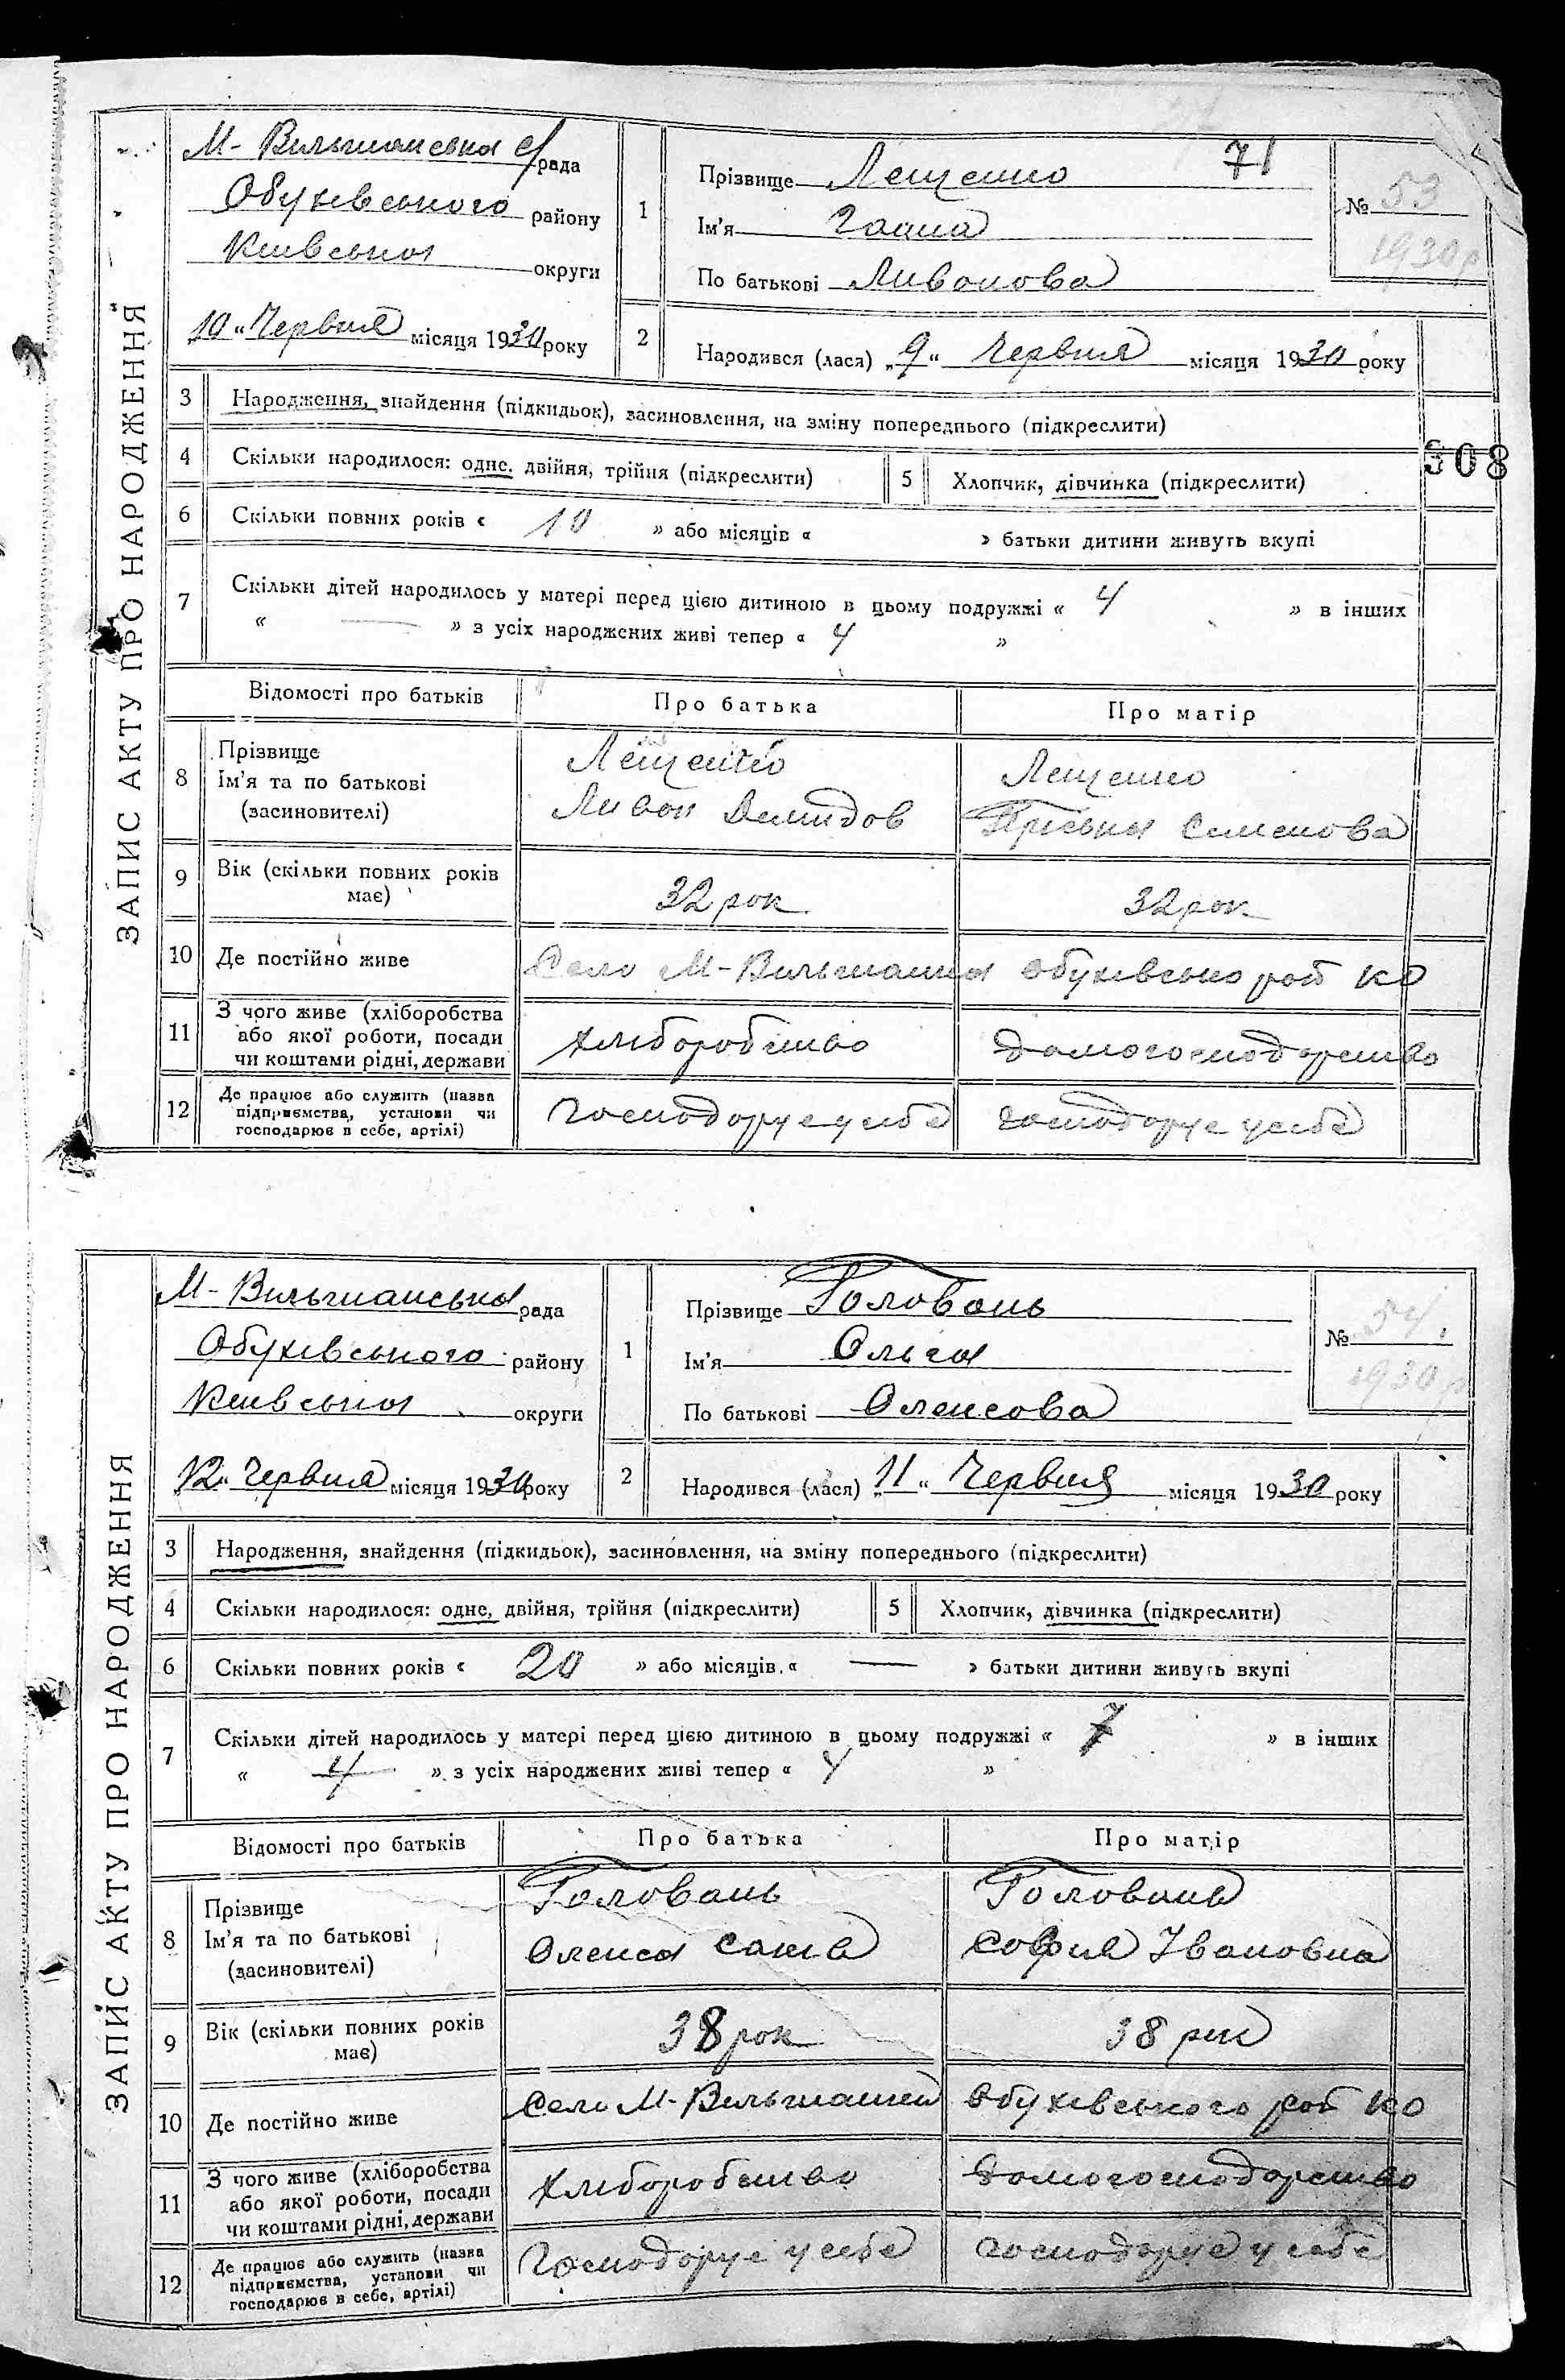 ЗАПИС АКТУ ПРО НАРОДЖЕННЯ
М-Вильшанська с/рада
Обухівського району
Київська округи
„10“ Червня місяця 1930 року
1 Прізвище Лещенко 71
Ім'я Ганна
По батькові Ливонова
№ 53
1930 р
2 Народився (лася) „9“ Червня місяця 1930 року
3 Народження, знайдення (підкидьок), засиновлення, на зміну попереднього (підкреслити)
308
4 Скільки народилося: одне, двійня, трійня (підкреслити) 5 Хлопчик, дівчинка (підкреслити)
6 Скільки повних років « 10 » або місяців « » батьки дитини живуть вкупі
7 Скільки дітей народилось у матері перед цією дитиною в цьому подружжі « 4 » в інших
« — » з усіх народжених живі тепер « 4 »
Відомості про батьків Про батька Про матір
8 Прізвище
Ім'я та по батькові
(засиновителі)
Лещенко
Ливон Демидов
Лещенко
Пріська Семенова
9 Вік (скільки повних років має) 32 рок 32 рок
10 Де постійно живе Село М-Вильшанка Обухівсько рай КО
11 З чого живе (хліборобства
або якої роботи, посади
чи коштами рідні, держави
хліборобство домогосподарство
12 Де працює або служить (назва
підприємства, установи чи
господарює в себе, артілі)
Господарує у себе господарує у себе
ЗАПИС АКТУ ПРО НАРОДЖЕННЯ
М-Вильшанська рада
Обухівського району
Київська округи
„12“ Червня місяця 1930 року
1 Прізвище Головань
Ім'я Ольга
По батькові Олексова
№ 54.
1930 р
2 Народився (лася) „11“ Червня місяця 1930 року
3 Народження, знайдення (підкидьок), засиновлення, на зміну попереднього (підкреслити)
4 Скільки народилося: одне, двійня, трійня (підкреслити) 5 Хлопчик, дівчинка (підкреслити)
6 Скільки повних років « 20 » або місяців « — » батьки дитини живуть вкупі
7 Скільки дітей народилось у матері перед цією дитиною в цьому подружжі « 7 » в інших
« 4 » з усіх народжених живі тепер « 4 »
Відомості про батьків Про батька Про матір
8 Прізвище
Ім'я та по батькові
(засиновителі)
Головань
Олекса
Головань
София Івановна
9 Вік (скільки повних років має) 38 рок 38 рок
10 Де постійно живе Село М-Вильшанка Обухівського рай КО
11 З чого живе (хліборобства
або якої роботи, посади
чи коштами рідні, держави
хліборобство домогосподарство
12 Де працює або служить (назва
підприємства, установи чи
господарює в себе, артілі)
Господарує у себе господарує у себе